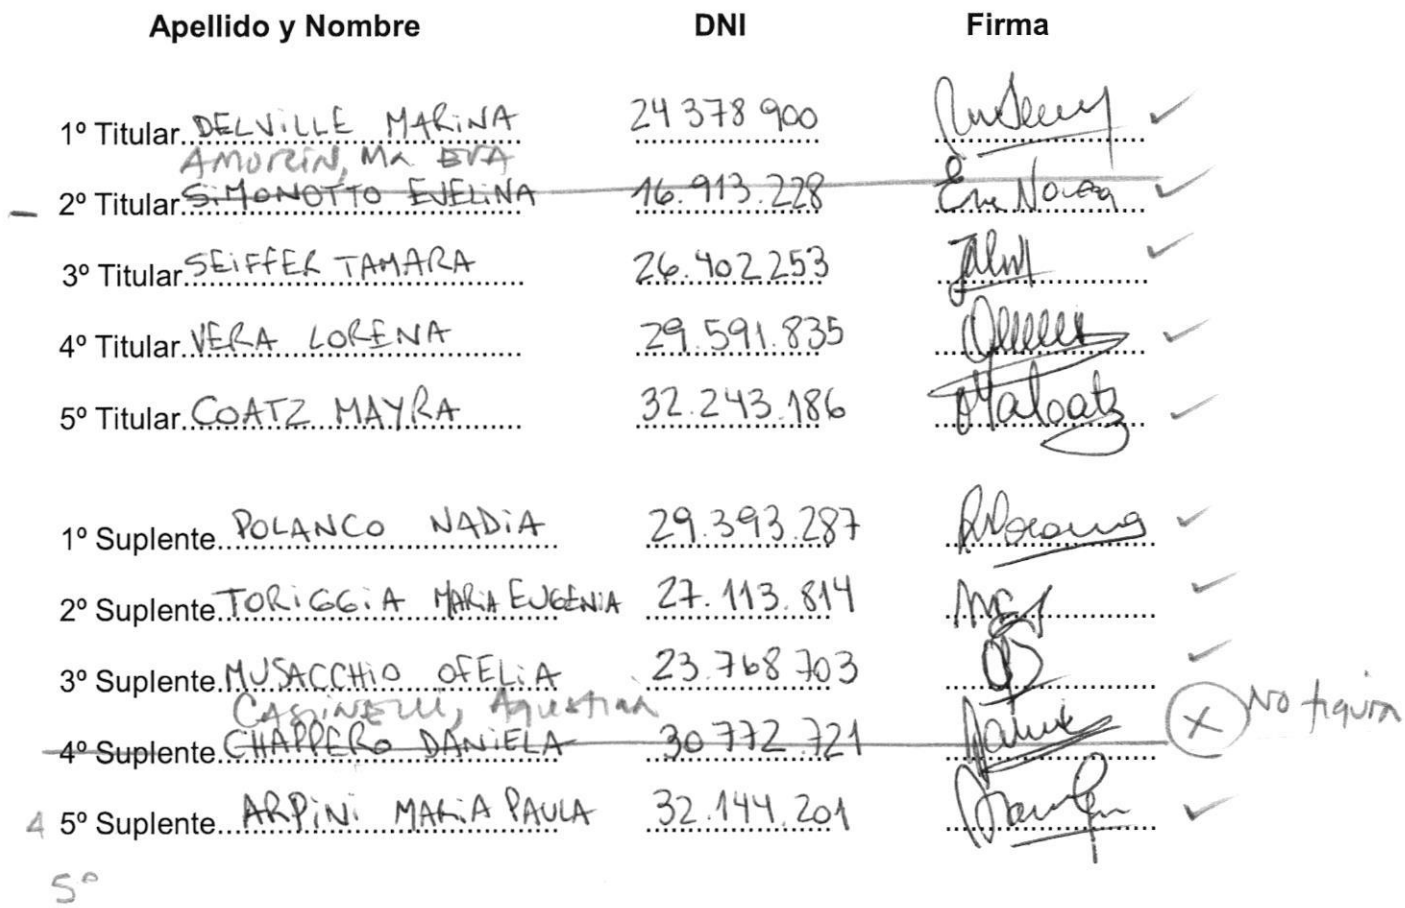 Apellido y Nombre DNI Firma
1º Titular DELVILLE MARINA 24 378 900
AMORIN, Ma EVA
2º Titular SIMONOTTO EVELINA 16.913.228
3º Titular SEIFFER TAMARA 26.402253
4º Titular VERA LORENA 29.591.835
5º Titular COATZ MAYRA 32.243.186
1º Suplente POLANCO NADIA 29.393.287
2º Suplente TORIGGIA MARIA EUGENIA 27.113.814
3º Suplente MUSACCHIO OFELIA 23.768 703
Agustina
4º Suplente CHAPPERO DANIELA 30 772 721 X No figura
4 5º Suplente ARPINI MARIA PAULA 32.144.201
5º